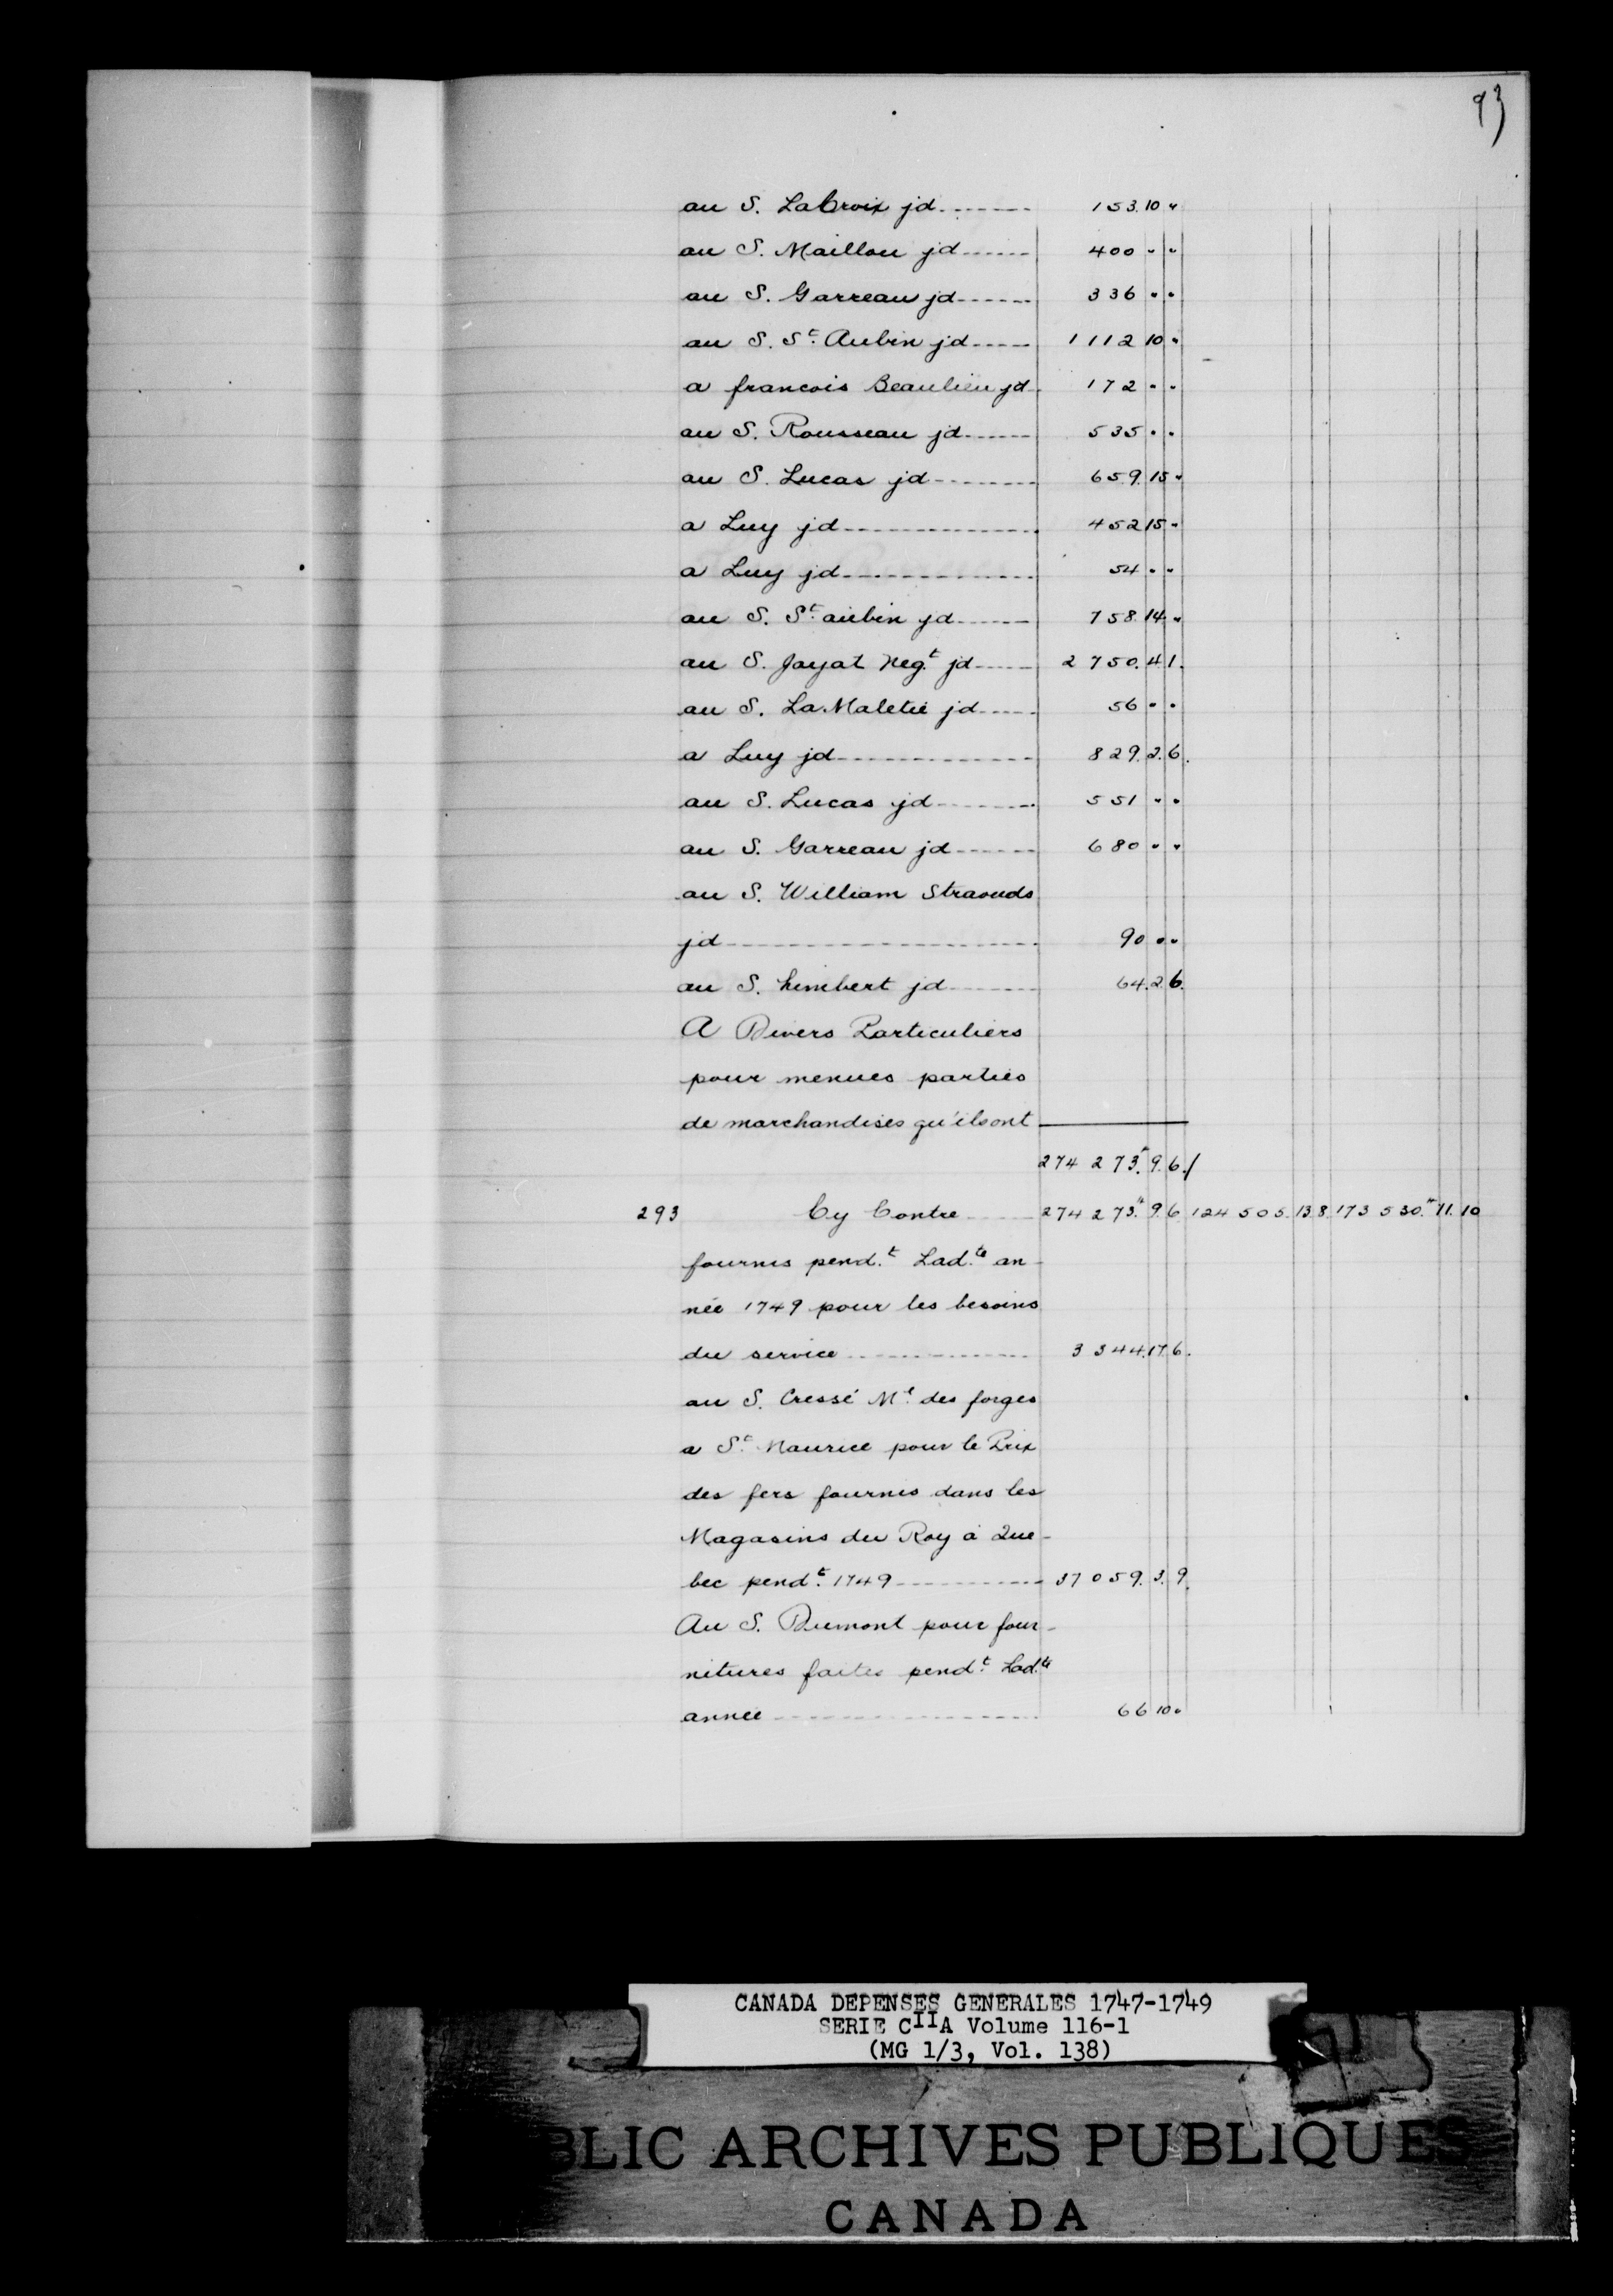 93
au S. LaCroix jd 153. 10 "
au S. Maillou jd 400 " "
au S. Garreau jd 336 " "
au S. St. Aubin jd 1112 10 "
a francois Beaulieu jd 172 " "
au S. Rousseau jd 535 " "
au S. Lucas jd 659. 15 "
a Luy jd 452 15 "
a Luy jd 54 " "
au S. St. aubin jd 758. 14 "
au S. Jayat Neg.t jd 2 750. 4. 1.
au S. La Maletie jd 56 " "
a Luy jd 829. 2. 6.
au S. Lucas jd 551 " "
au S. Garreau jd 680 " "
au S. William Straouds
jd 90 " "
au S. himbert jd 64. 2 6.
A Divers Particuliers
pour menues parties
de marchandises qu'ils ont
274 273.# 9. 6./
293 Cy Contre 274 273.# 9. 6 124 505. 13 8. 173 530.# 11. 10
fournis pend.t Lad.te an-
née 1749 pour les besoins
du service 3 344. 17. 6.
au S. Cressé M.e des forges
a St. Maurice pour le Prix
des fers fournis dans les
Magasins du Roy à Que-
bec pend.t 1749 37 059. 3. 9.
Au S. Dumont pour four-
nitures faites pend.t Lad.te
année 66 10 "
CANADA DEPENSES GENERALES 1747-1749
SERIE CIIA Volume 116-1
(MG 1/3, Vol. 138)
BLIC ARCHIVES PUBLIQUES
CANADA